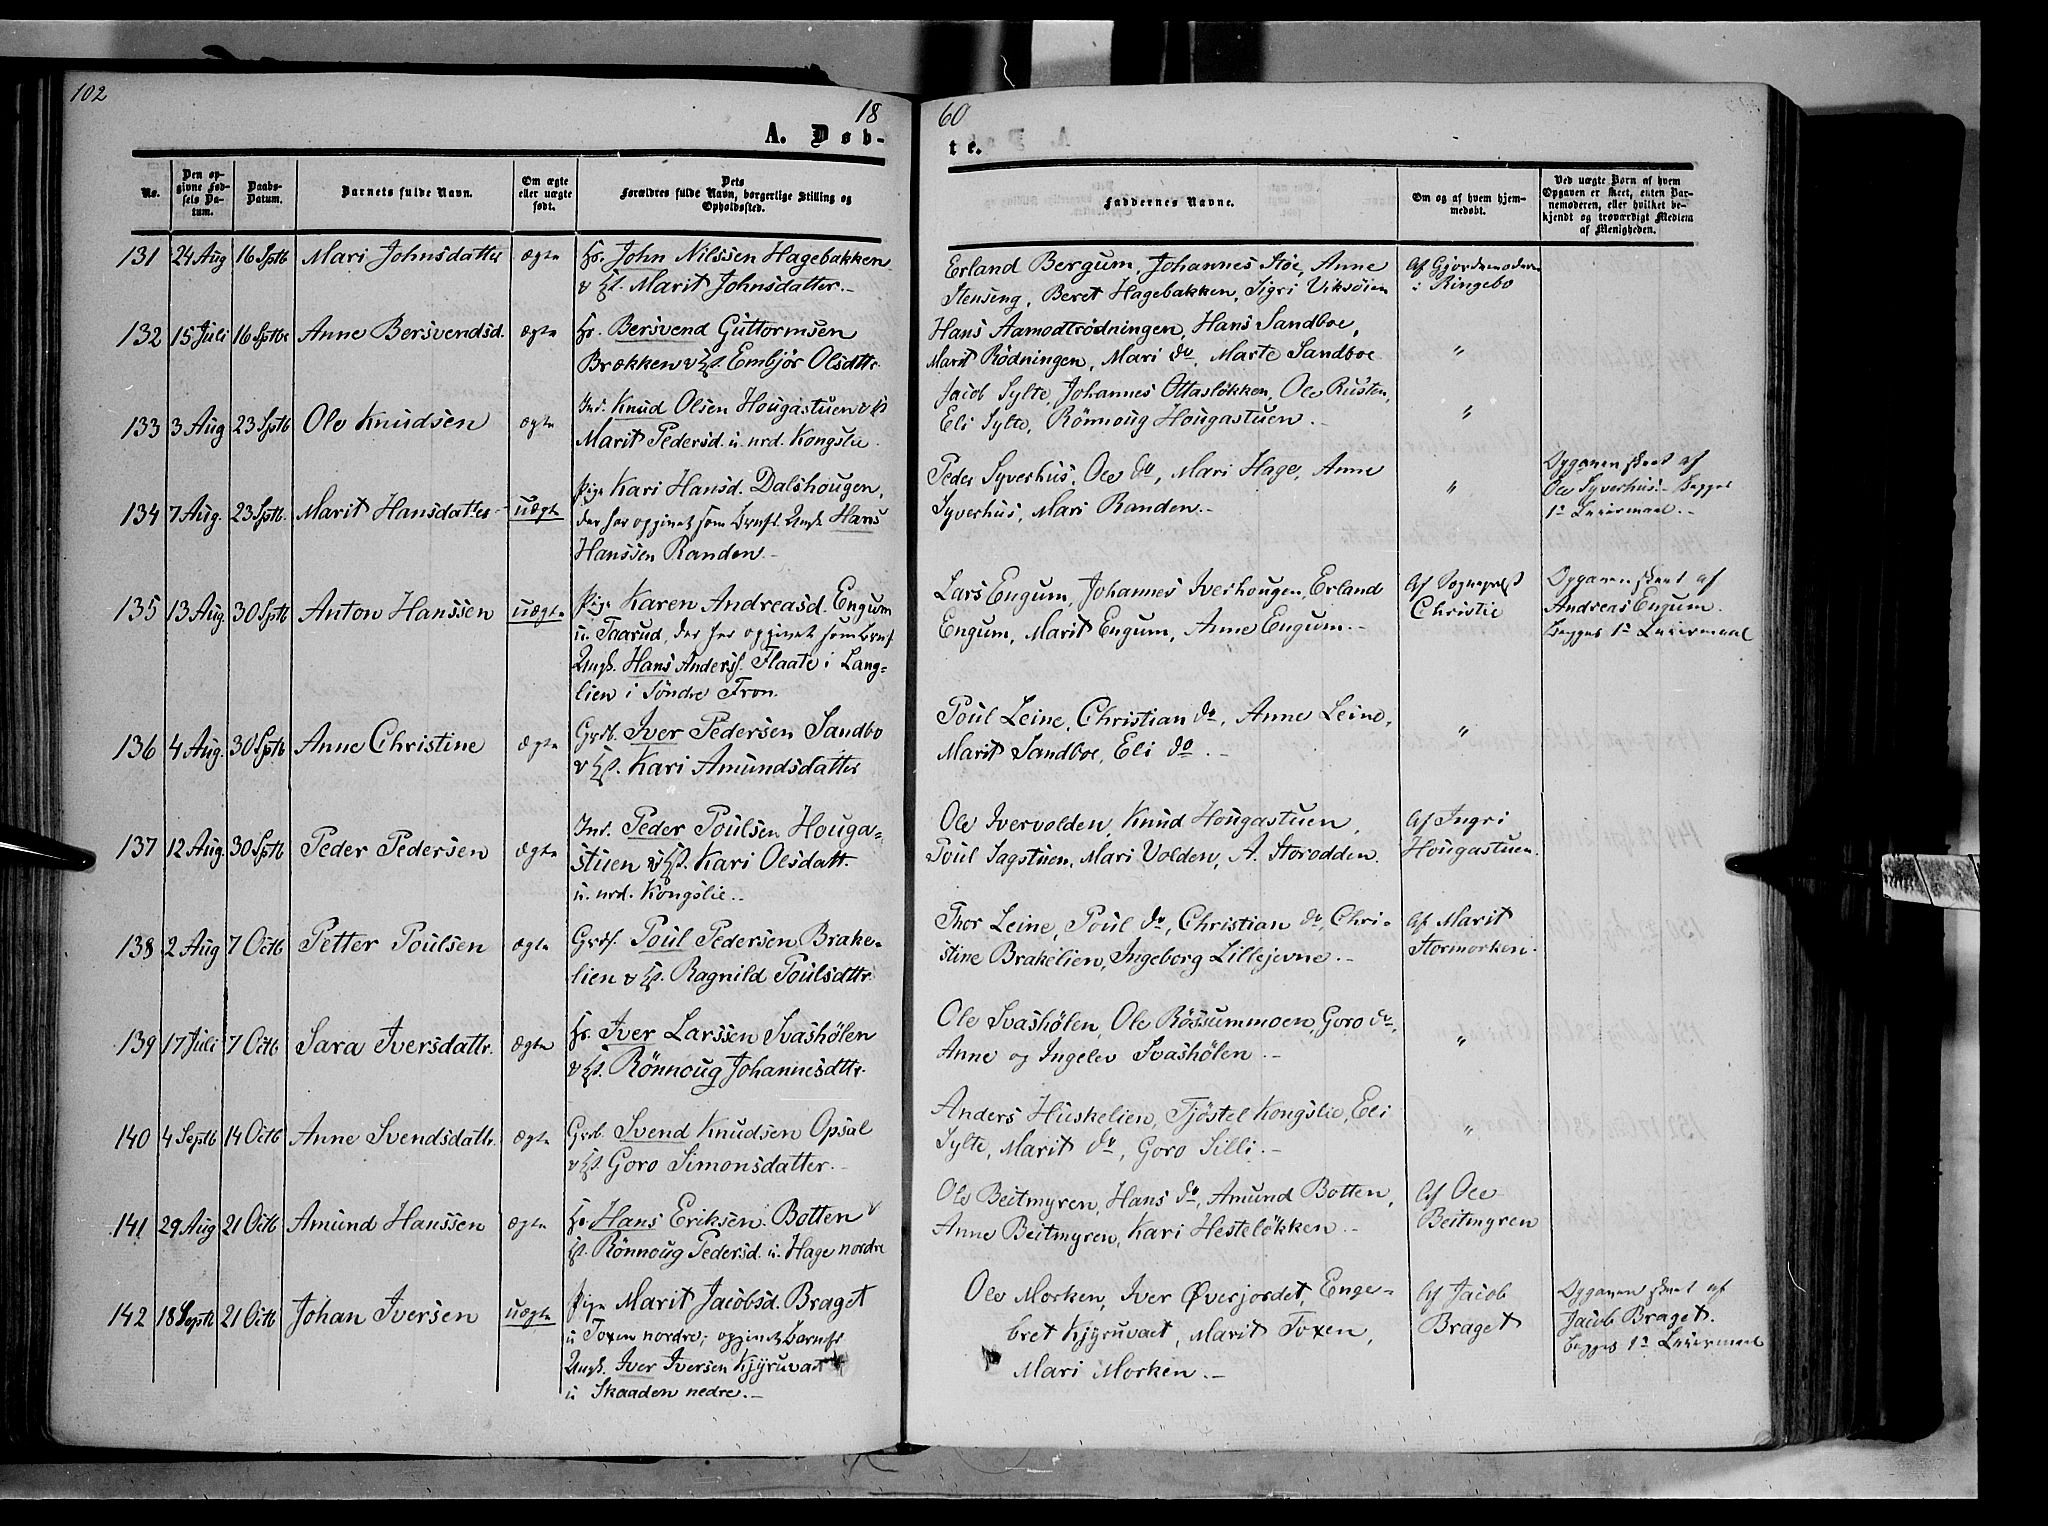 102
18
60
A. Døb-
te.
No.
Den op-
givne Fød-
sels Da-
tum.
Daabs-
Datum.
Barnets fulde Navn.
Om ægte
eller uægte
født.
Dets
Forældres fulde Navn, borgerlige Stilling og
Opholdssted.
Faddernes Navne.
Om og af hvem hjem-
medøbt.
Ved uægte Børn af hvem
Opgaven er skeet, enten Bar-
nemoderen, eller hvilket be-
kjendt og troværdigt Medlem
af Menigheden.
131 24 Aug 16 Sptb Mari Johnsdatter ægte Hs. John Nilssen Hagebakken
v Hst. Marit Johnsdatter.-
Erland Bergum, Johannes Støe, Anne
Stenseng, Beret Hagebakken, Sigri Viksøien
Af Gjordemoderen
i Ringebo
132 15 Juli 16 Sptbr Anne Bersvendsd. ægte Hs. Bersvend Guttormsen
Brækken v Hst. Embjør Olsdttr.
Hans Aamodtrödningen, Hans Sandboe,
Marit Rödningen, Mari do, Marte Sandboe
"
133 3 Aug 23 Sptb Ole Knudsen ægte Ind. Knud Olsen Hougastuen v Hst
Marit Pedersd. u. nrd. Kongslie.
Jacob Sylte, Johannes Ottasløkken, Ole Rusten,
Eli Sylte, Rönnoug Hougastuen.-
"
134 7 Aug. 23 Sptb. Marit Hansdatter uægte Pige Kari Hansd. Dalshougen,
der har opgivet som Barnf. Ungk Hans
Hanssen Randen.-
Peder Syverhus, Ole do, Mari Hage, Anne
Syverhus, Mari Randen.-
"
Opgaven skeet af
Ole Syverhus.- Begges
1ste Leiermaal.-
135 13 Aug. 30 Sptb Anton Hanssen uægte Pige Karen Andreasd. Engum
u. Taarud, der har opgivet som Barnf
Ungk. Hans Anders. Flaate i Lang-
lien i Söndre Fron.
Lars Engum, Johannes Iverhougen, Erland
Engum, Marit Engum, Anne Engum.-
Af Sognepræst
Christie
Opgaven skeet af
Andreas Engum.
Begges 1ste Leiermaal
136 4 Aug. 30 Sptb Anne Christine ægte Grdb. Iver Pedersen Sandbo
v Hst. Kari Amundsdatter
Poul Leine, Christian do, Anne Leine,
Marit Sandboe, Eli do.-
"
137 12 Aug. 30 Sptb Peder Pedersen ægte Ind. Peder Poulsen Houga-
stuen v Hst. Kari Olsdatt.
u. nrd. Kongslie.-
Ole Ivervolden, Knud Hougastuen,
Poul Sagstuen, Mari Volden, A. Storodden.
Af Ingri
Hougastuen.
138 2 Aug 7 Octb Petter Poulsen ægte Grds. Poul Pedersen Brake-
lien v Hst. Ragnild Poulsdttr.
Thor Leine, Poul do, Christian do, Chri-
stine Brakelien, Ingeborg Lillejevne.-
Af Marit
Stormorken.
139 17 Juli 7 Octb Sara Iversdattr. ægte Hs. Iver Larssen Svashölen
v Hst. Rönnoug Johannesdttr.
Ole Svashölen, Ole Rössummoen, Goro do,
Anne og Ingelev Svashölen.-
"
140 4 Septb 14 Octb Anne Svendsdattr. ægte Grdb. Svend Knudsen Opsal
v Hst. Goro Simonsdatter.-
Anders Huskelien, Tjöstel Kongslie, Eli
Sylte, Marit do, Goro Silli.-
"
141 29 Aug 21 Octb Amund Hanssen ægte Hs. Hans Eriksen Botten v
Hst. Rönnoug Pedersd. u. Hage nordre
Ole Beitmyren, Hans do, Amund Botten,
Anne Beitmyren, Kari Hestelökken.-
Af Ole
Beitmyren
142 18 Septb 21 Octb Johan Iversen uægte Pige Marit Jacobsd. Braget
u Toxen nordre; opgivet Barnf.
Ungk. Iver Iversen Kjyruvaet
u Skaaden nedre.-
Ole Morken, Iver Øverjordet, Enge-
bret Kjyruvaet, Marit Toxen,
Mari Morken.-
Af Jacob
Braget
Opgaven skeet af
Jacob Braget.
Begges 1ste Leiermaal